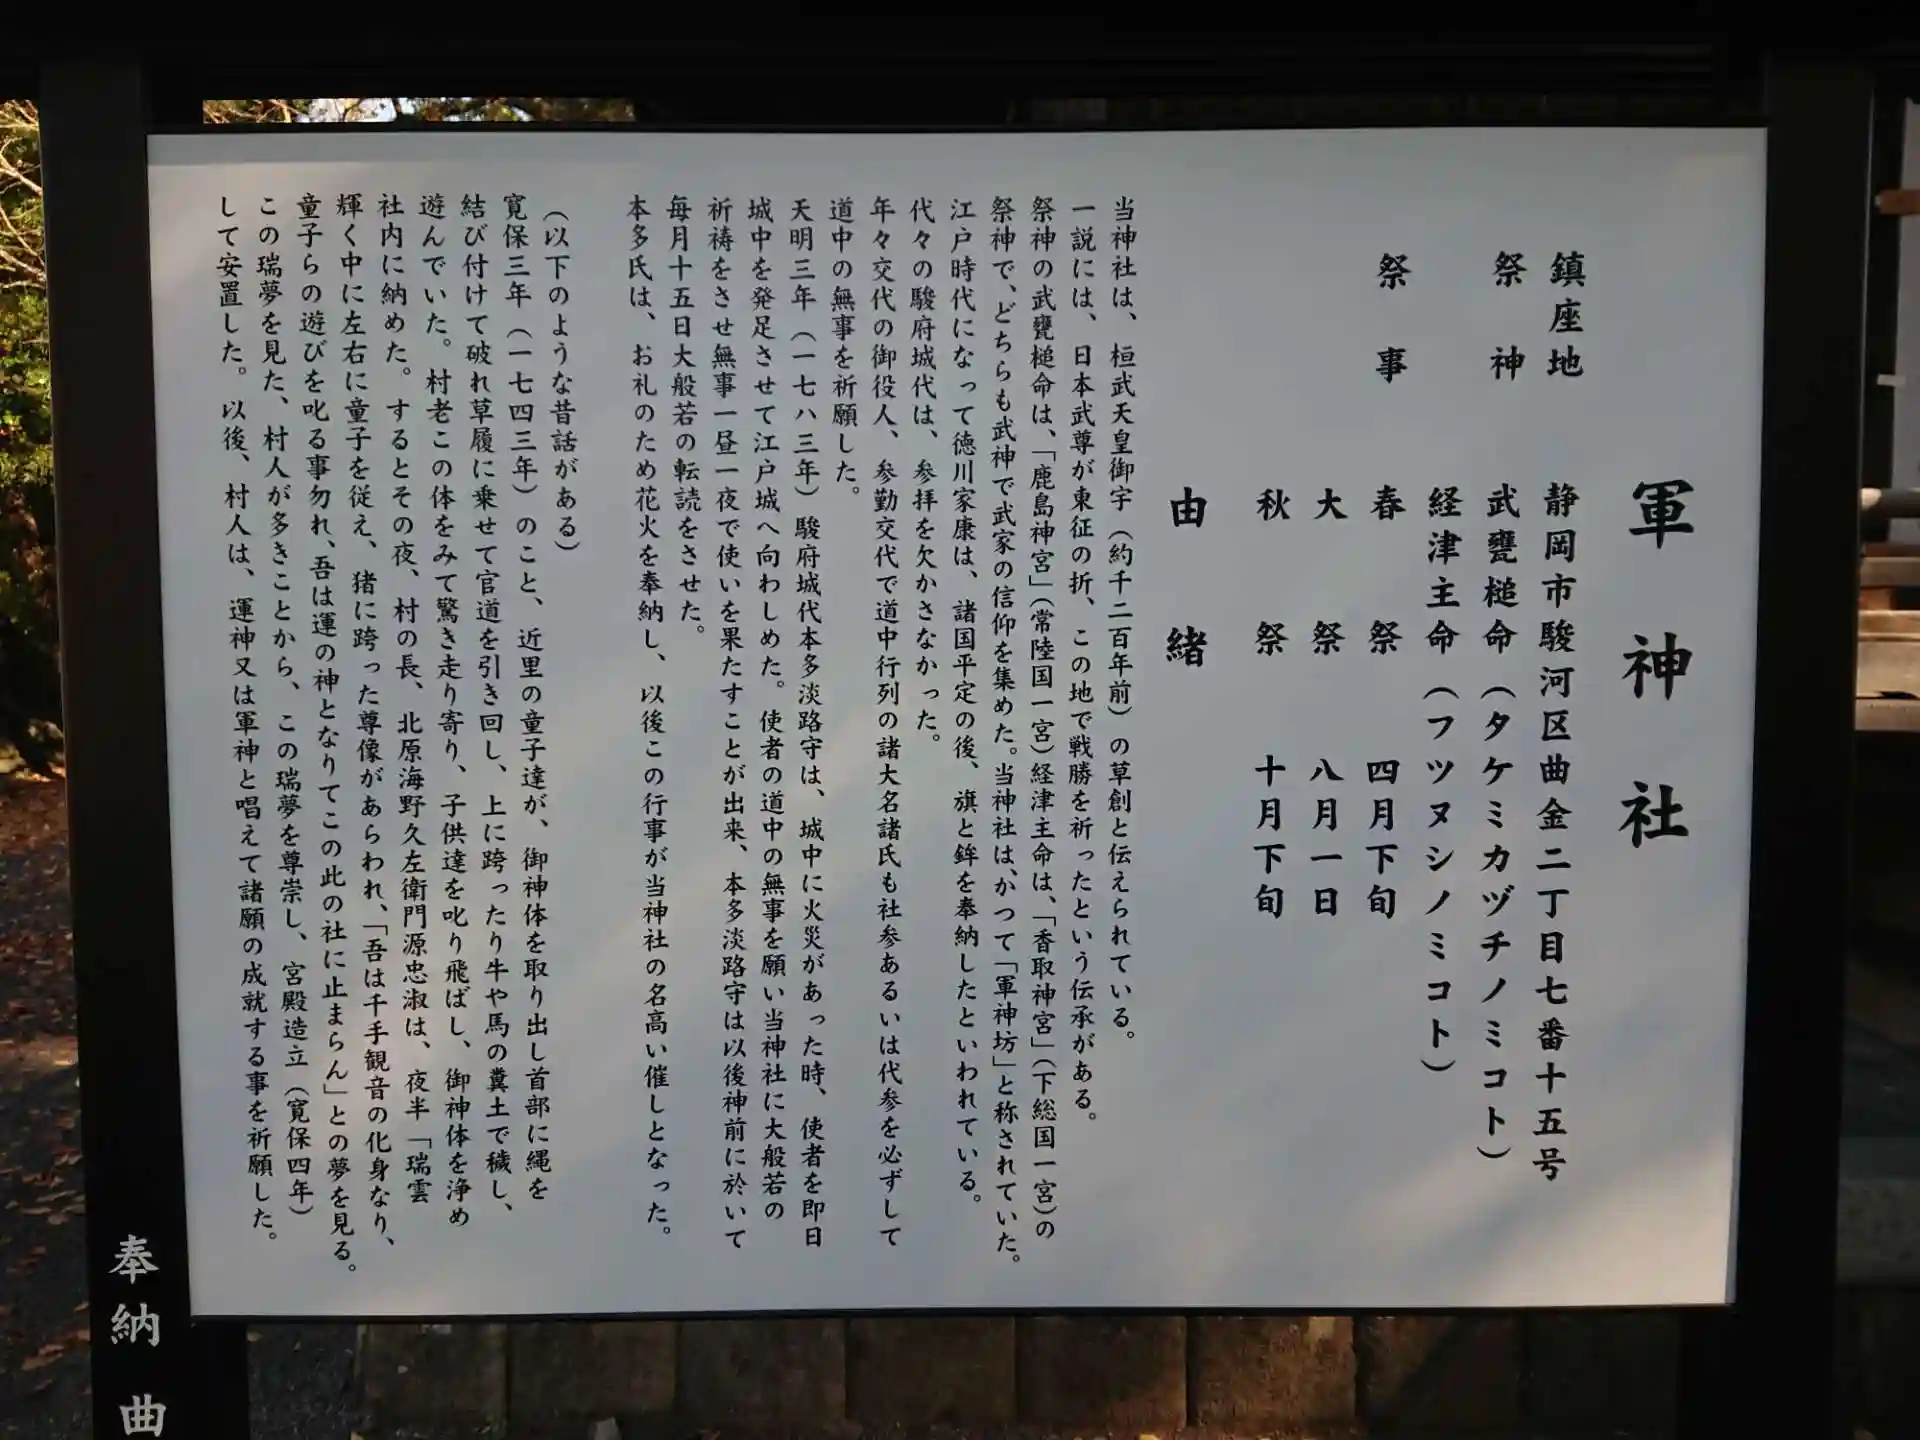 軍神社
鎮座地 静岡市駿河区曲金二丁目七番十五号
祭神 武甕槌命（タケミカヅチノミコト）
経津主命（フツヌシノミコト）
祭事 春祭 四月下旬
大祭 八月一日
秋祭 十月下旬
由緒
当神社は、桓武天皇御宇（約千二百年前）の草創と伝えられている。
一説には、日本武尊が東征の折、この地で戦勝を祈ったという伝承がある。
祭神の武甕槌命は、「鹿島神宮」（常陸国一宮）経津主命は、「香取神宮」（下総国一宮）の
祭神で、どちらも武神で武家の信仰を集めた。当神社は、かつて「軍神坊」と称されていた。
江戸時代になって徳川家康は、諸国平定の後、旗と鉾を奉納したといわれている。
代々の駿府城代は、参拝を欠かさなかった。
年々交代の御役人、参勤交代で道中行列の諸大名諸氏も社参あるいは代参を必ずして
道中の無事を祈願した。
天明三年（一七八三年）駿府城代本多淡路守は、城中に火災があった時、使者を即日
城中を発足させて江戸城へ向わしめた。使者の道中の無事を願い当神社に大般若の
祈祷をさせ無事一昼一夜で使いを果たすことが出来、本多淡路守は以後神前に於いて
毎月十五日大般若の転読をさせた。
本多氏は、お礼のため花火を奉納し、以後この行事が当神社の名高い催しとなった。
（以下のような昔話がある）
寛保三年（一七四三年）のこと、近里の童子達が、御神体を取り出し首部に縄を
結び付けて破れ草履に乗せて官道を引き回し、上に跨ったり牛や馬の糞土で穢し、
遊んでいた。村老この体をみて驚き走り寄り、子供達を叱り飛ばし、御神体を浄め
社内に納めた。するとその夜、村の長、北原海野久左衛門源忠淑は、夜半「瑞雲
輝く中に左右に童子を従え、猪に跨った尊像があらわれ、「吾は千手観音の化身なり、
童子らの遊びを叱る事勿れ、吾は運の神となりてこの此の社に止まらん」との夢を見る。
この瑞夢を見た、村人が多きことから、この瑞夢を尊崇し、宮殿造立（寛保四年）
して安置した。以後、村人は、運神又は軍神と唱えて諸願の成就する事を祈願した。
奉納 曲